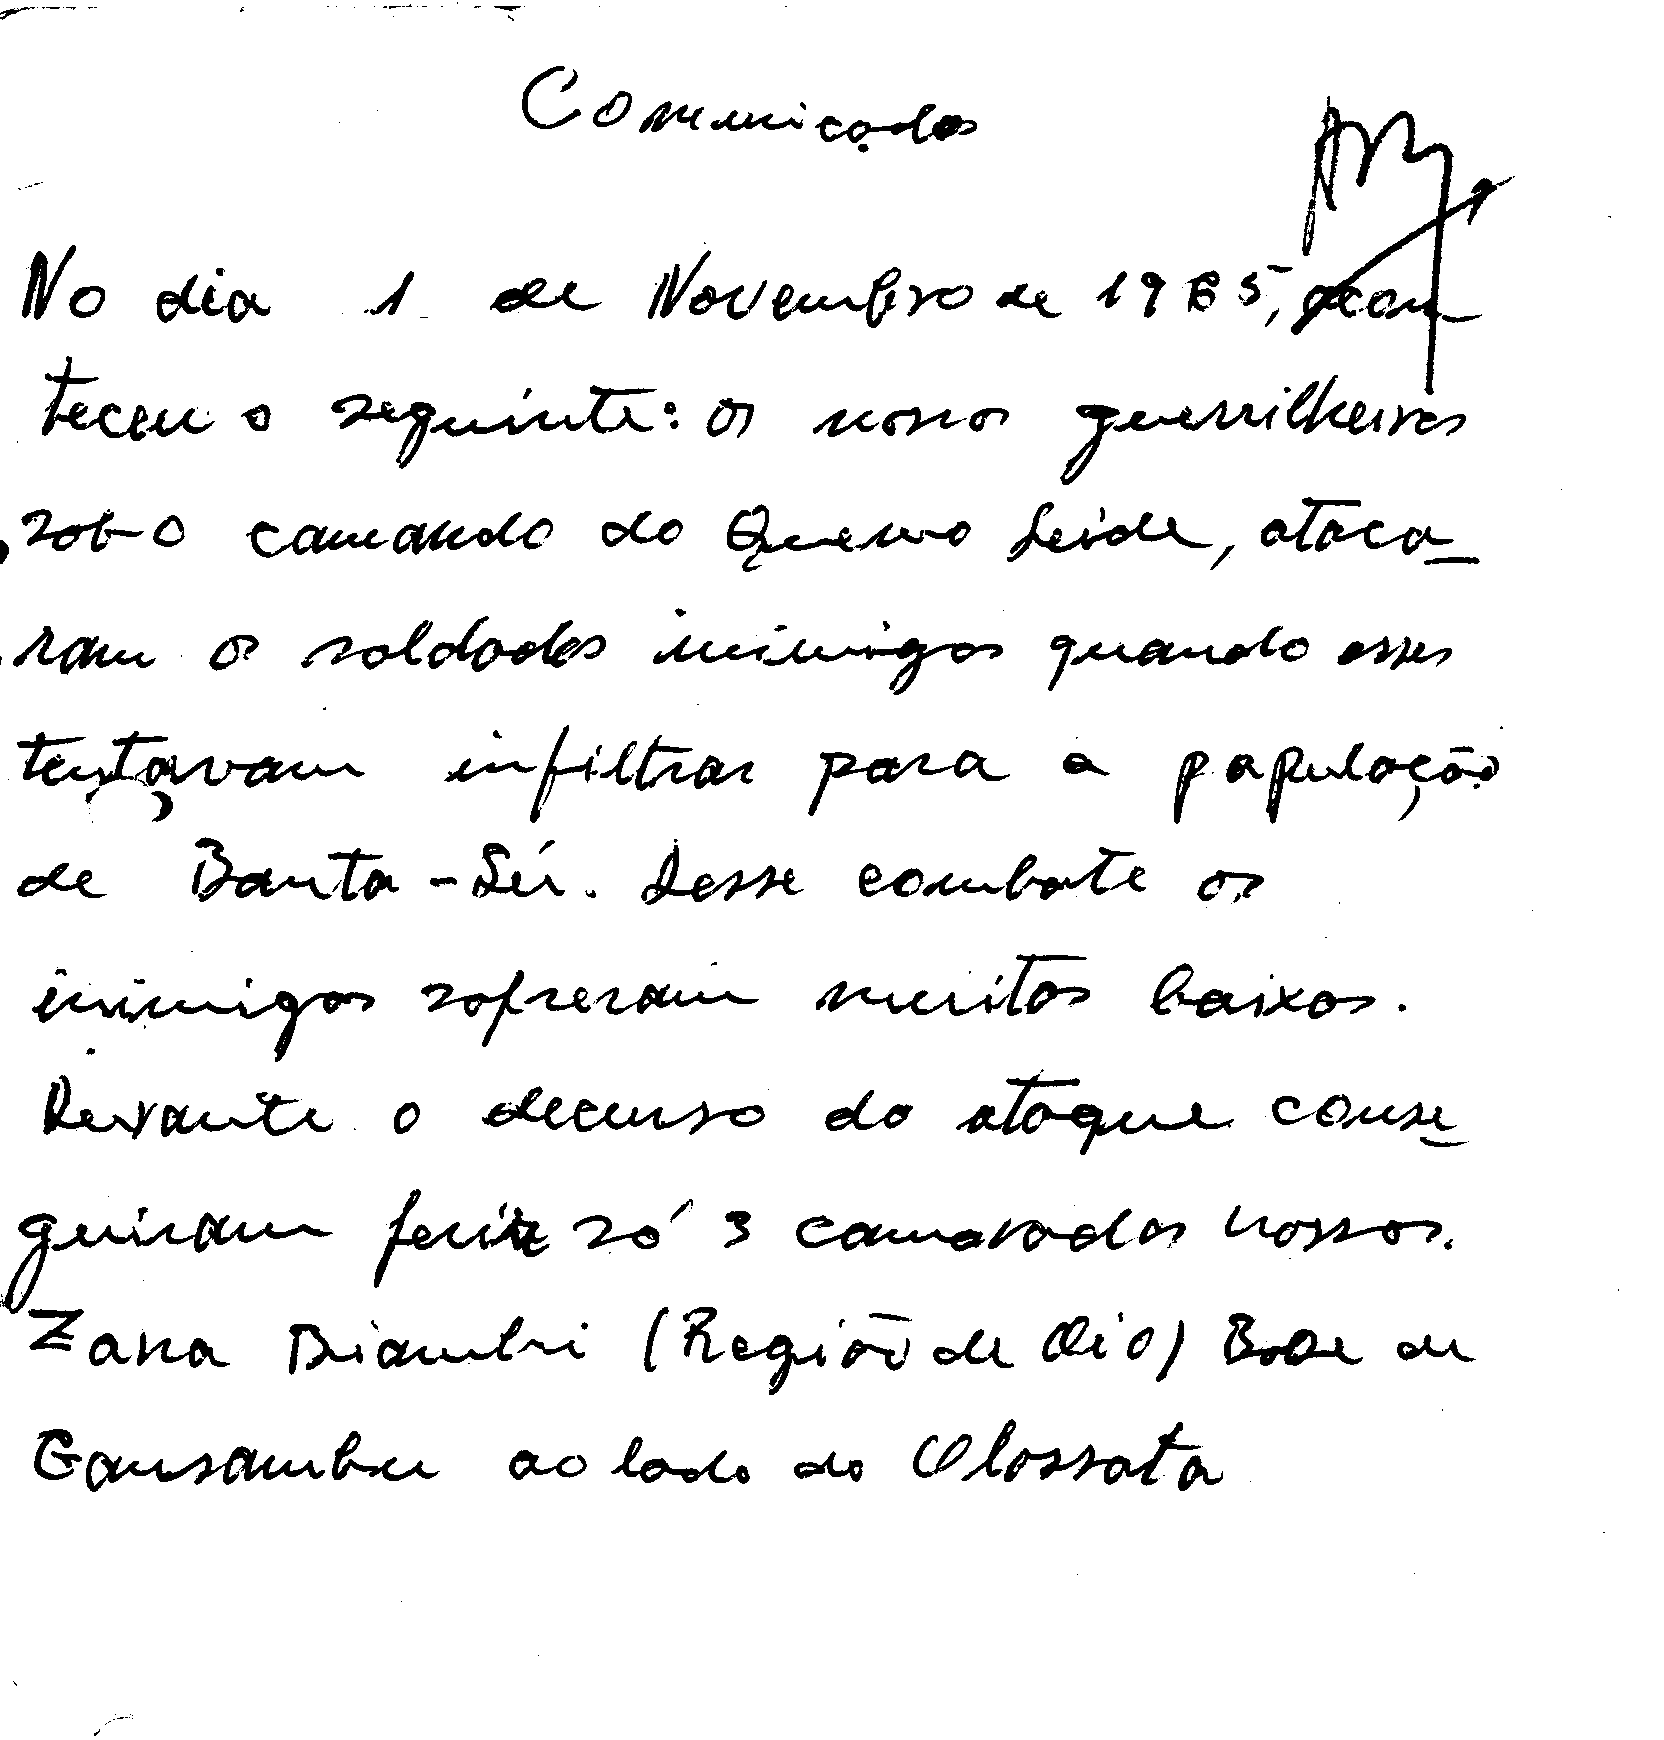 Comunicados
No dia 1 de Novembro de 1965, acon
teceu o seguinte: os nossos guerrilheiros
sob o comando do Quemo Seide, ataca-
ram os soldados inimigos quando esses
tentavam infiltrar para a população
de Banta-Sér. Desse combate os
inimigos sofreram muitas baixas.
Durante o decurso do ataque conse-
guiram ferir só 3 camaradas nossos.
Zona Biambi (Região de Oio) Base de
ao lado do Olossato